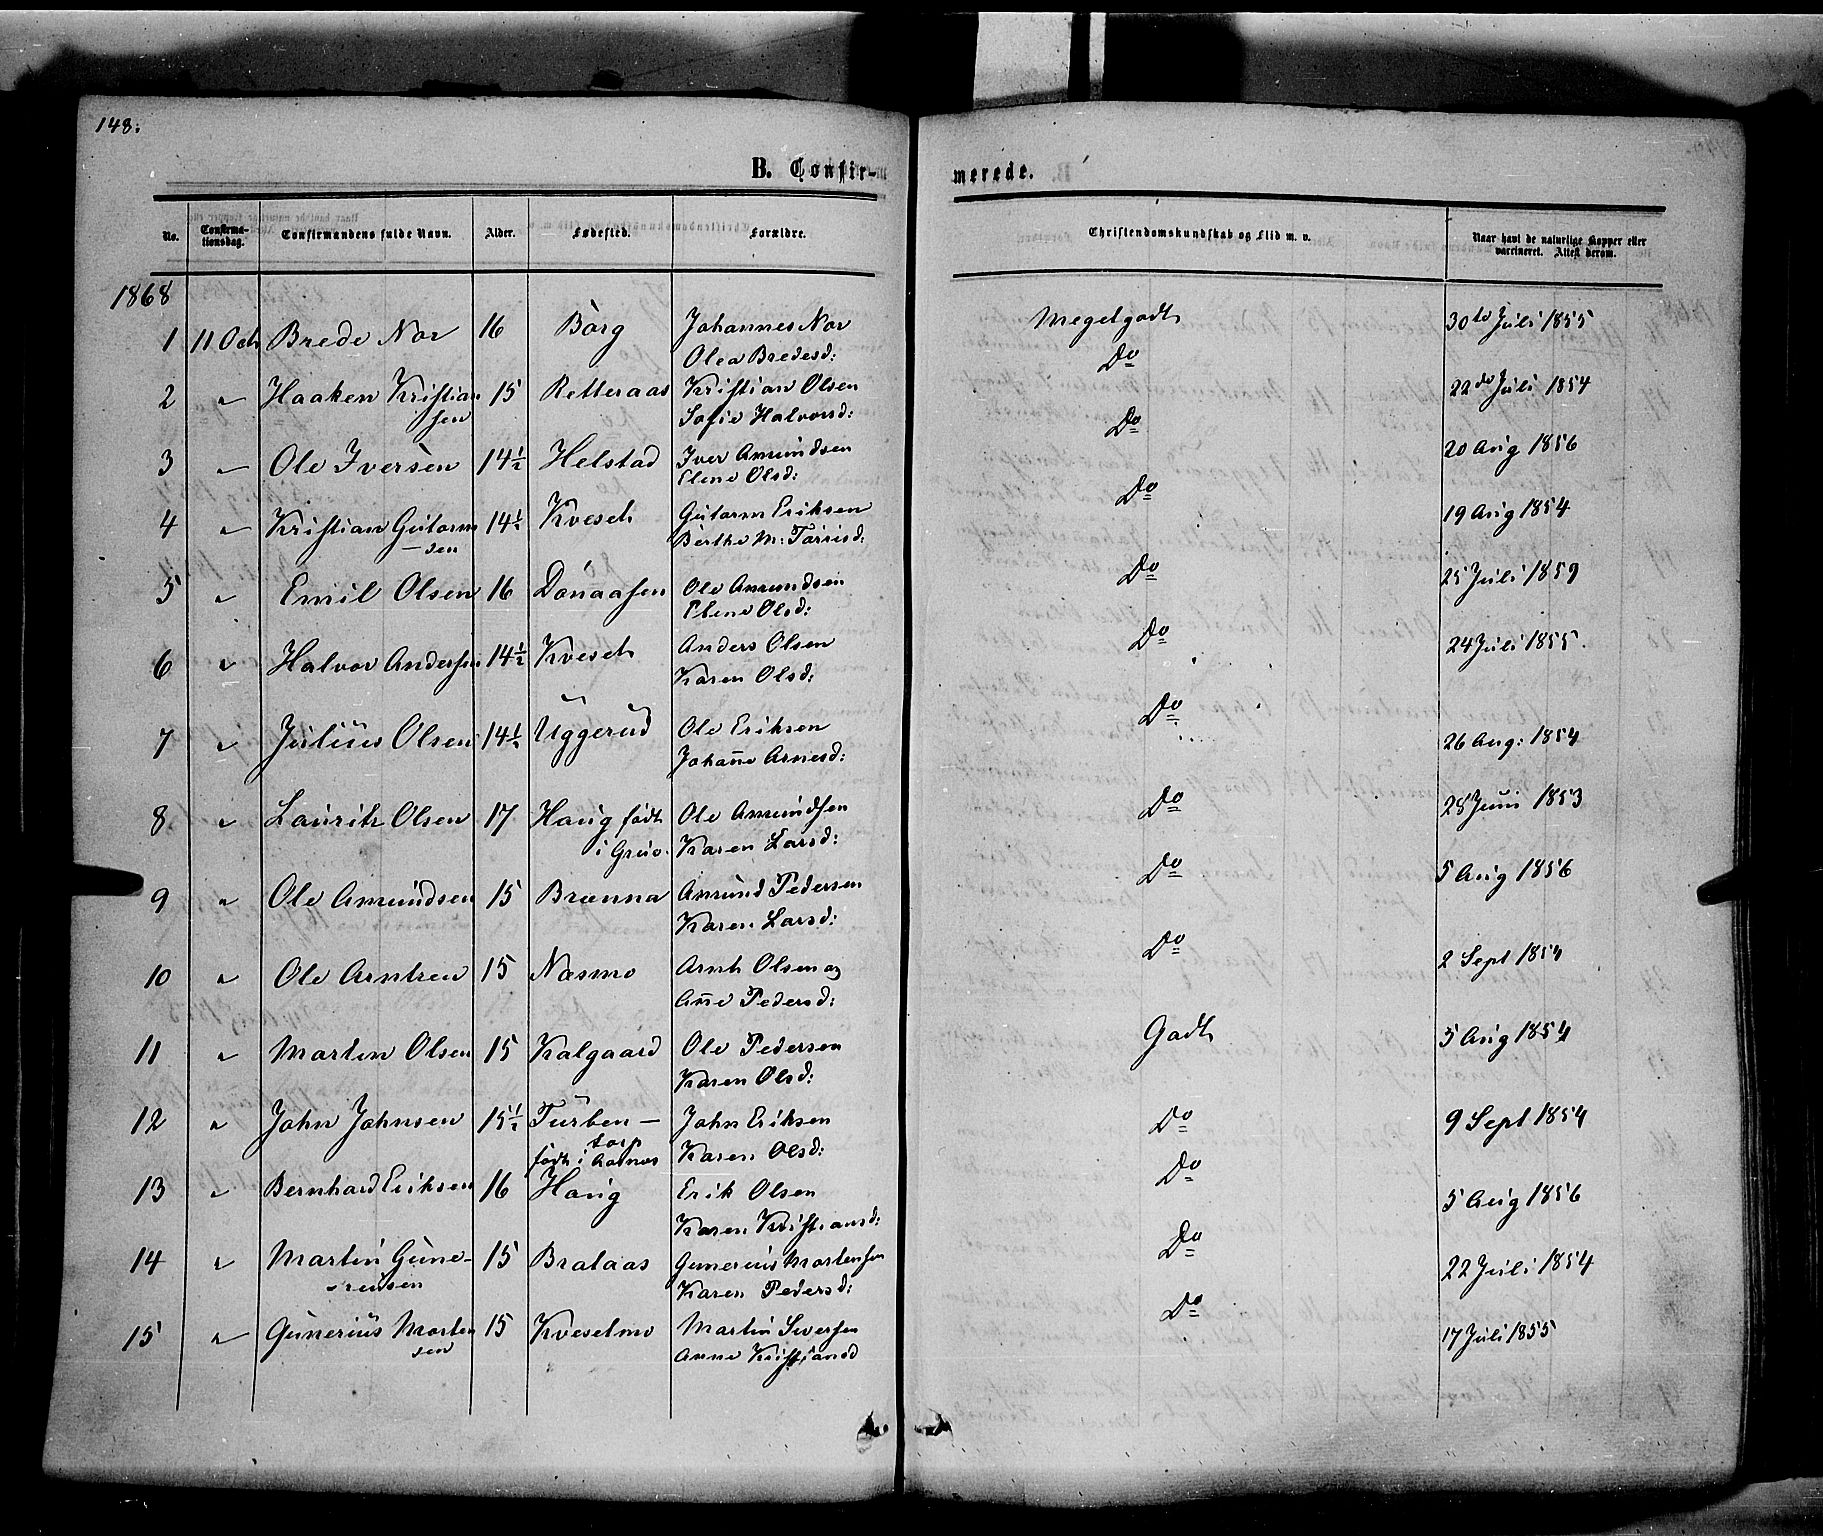 148:
B. Confir-
merede.
No. Confirma-tionsdag. Confirmandens fulde Navn. Alder. Fødested. Forældre. Christendomskundskab og Flid m. v. Naar havt de naturlige Kopper eller vaccineret. Attest derom.
1868
1 11 Oct Brede Nor 16 Borg Johannes Nor Megetgodt 30te Juli 1855
Olea Bredesd:
2 " Haaken Kristian 15 Retteraas Kristian Olsen Do 22de Juli 1854
sen Sofie Halvorsd:
3 " Ole Iversen 14½ Helstad Iver Amundsen Do 20 Aug 1856
Elene Olsd:
4 " Kristian Gutorm 14½ Kveset Gutorm Eriksen Do 19 Aug 1854
-sen Berthe M: Torrisd:
5 " Emil Olsen 16 Donaasen Ole Amundsen Do 25 Juli 1859
Elene Olsd:
6 " Halvor Andersen 14½ Kveset Anders Olsen Do 24 Juli 1855.
Karen Olsd:
7 " Julius Olsen 14½ Uggerud Ole Eriksen Do 26 Aug: 1854
Johanne Arnesd:
8 " Laurits Olsen 17 Haug født Ole Amundsen Do 28 Juni 1853
i Grue. Karen Larsd:
9 " Ole Amundsen 15 Brænna Amund Pedersen Do 5 Aug 1856
Karen Larsd:
10 " Ole Arntsen 15 Næsmo Arnt Olsen og Do 2 Sept 1854
Anne Pedersd:
11 " Martin Olsen 15 Kalgaard Ole Pedersen Godt 5 Aug 1854
Karen Olsd:
12 " John Johnsen 15½ Turben- John Eriksen Do 9 Sept 1854
torp
født i Aasnes Karen Olsd:
13 " Bernhard Eriksen 16 Haug Erik Olsen Do 5 Aug 1856
Karen Kristiansd:
14 " Martin Gune- 15 Brataas Gunerius Mortensen Do 22 Juli 1854
riusen Karen Pedersd:
15 " Gunerius Morten 15 Kvesetmo Martin Siversen Do 17 Juli 1855
sen Anne Kristiansd